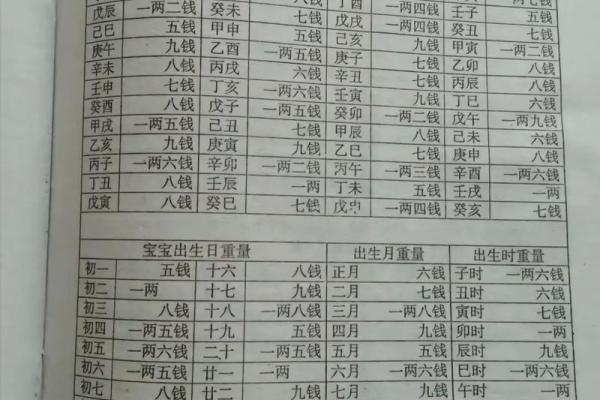 八钱 丁酉 一两七钱
戊辰 一两二钱 癸未 七钱 戊戌 一两四钱 壬子 五钱
己巳 五钱 甲申 五钱 己亥 一两四钱 癸丑 七钱
庚午 九钱 乙酉 一两五钱 庚子 九钱 甲寅 一两二钱
辛未 八钱 丙戌 六钱 辛丑 七钱 乙卯 八钱
壬申 七钱 丁亥 一两六钱 壬寅 七钱 丙辰 八钱
癸酉 八钱 戊子 一两五钱 癸卯 九钱 丁巳 六钱
甲戌 一两五钱 己丑 七钱 甲辰 一两二钱 戊午 一两九钱
乙亥 九钱 庚寅 九钱 乙巳 八钱 己未 六钱
丙子 一两六钱 辛卯 一两二钱 丙午 七钱 庚申 八钱
丁丑 八钱 壬辰 一两 丁未 一两三钱 辛酉 一两六钱
戊寅 八钱 癸巳 七钱 戊申 五钱 壬戌 一两
一两四钱 癸亥 七钱
宝宝出生日重量 出生月重量 出生时重量
初一 五钱 十六 八钱 正月 六钱 子时 一两六钱
初二 一两 十七 九钱 二月 七钱 丑时 六钱
初三 八钱 十八 一两八钱 三月 一两八钱 寅时 七钱
初四 一两五钱 十九 五钱 四月 九钱 卯时 一两
初五 一两六钱 二十 一两五钱 五月 五钱 辰时 九钱
初六 一两五钱 廿一 一两 六月 一两六钱 巳时 一两六钱
初七 八钱 廿二 九钱 七月 九钱 午时 一两